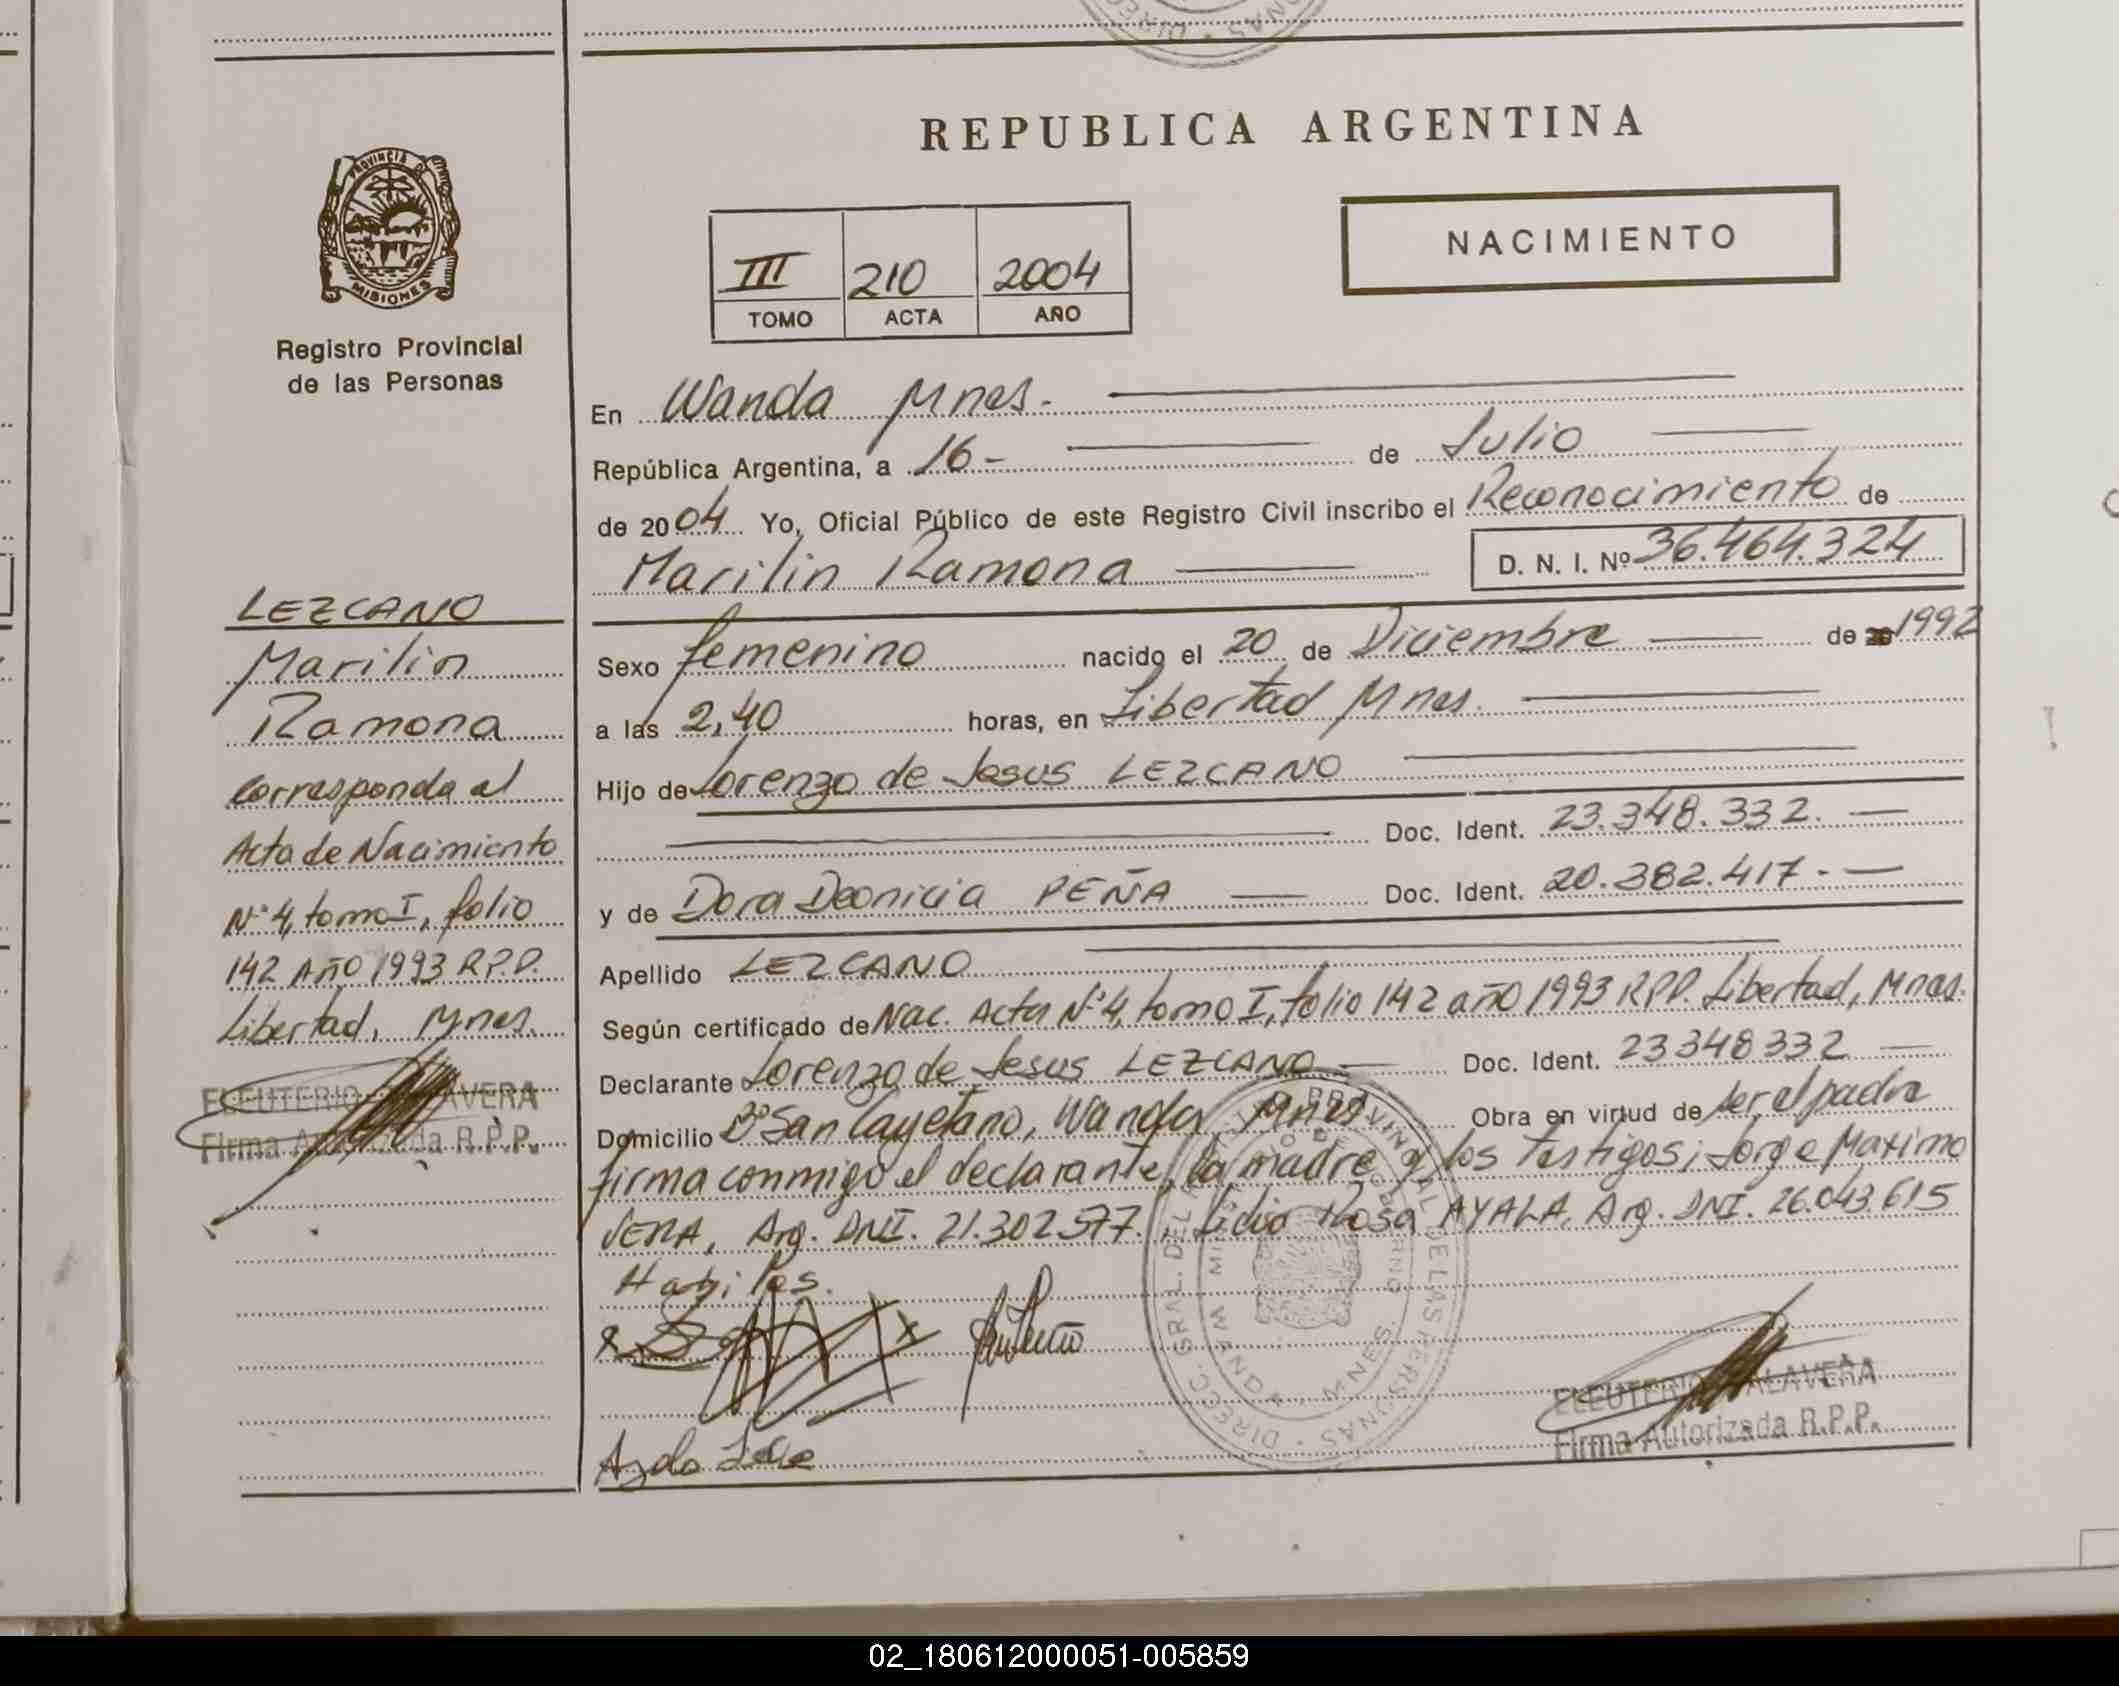 REPUBLICA ARGENTINA
PROVINCIA DE
MISIONES
Registro Provincial
de las Personas
III 210 2004
TOMO ACTA AÑO
NACIMIENTO
En Wanda Mnes.
República Argentina, a 16- de Julio
de 2004 Yo, Oficial Público de este Registro Civil inscribo el Reconocimiento de
Marilin Ramona D. N. I. Nº 36.464.324
Sexo femenino nacido el 20 de Diciembre de 1992
a las 2,40 horas, en Libertad Mnes.
Hijo de Lorenzo de Jesus LEZCANO
Doc. Ident. 23.348.332.
y de Dora Deonicia PEÑA Doc. Ident. 20.382.417.-
Apellido LEZCANO
Según certificado de Nac. Acta Nº 4, tomo I, folio 142 año 1993 R.P.P. Libertad, Mnes.
Declarante Lorenzo de Jesus LEZCANO Doc. Ident. 23348332
Domicilio Bº San Cayetano, Wanda Mnes Obra en virtud de ser el padre
firma conmigo el declarante, la madre y los testigos; Jorge Maximo
VERA, Arg. DNI. 21.302.577. Rosa AYALA, Arg. DNI. 26.043.615
LEZCANO
Marilin
Ramona
corresponde al
Acta de Nacimiento
Nº 4, tomo I, folio
142 AÑO 1993 R.P.P.
Libertad, Mnes.
ELEUTERIO TALAVERA
Firma Autorizada R.P.P.
DIRECC. GRAL. DEL REGISTRO PROVINCIAL DE LAS PERSONAS
WANDA, MNES.
ELEUTERIO TALAVERA
Firma Autorizada R.P.P.
02_180612000051-005859